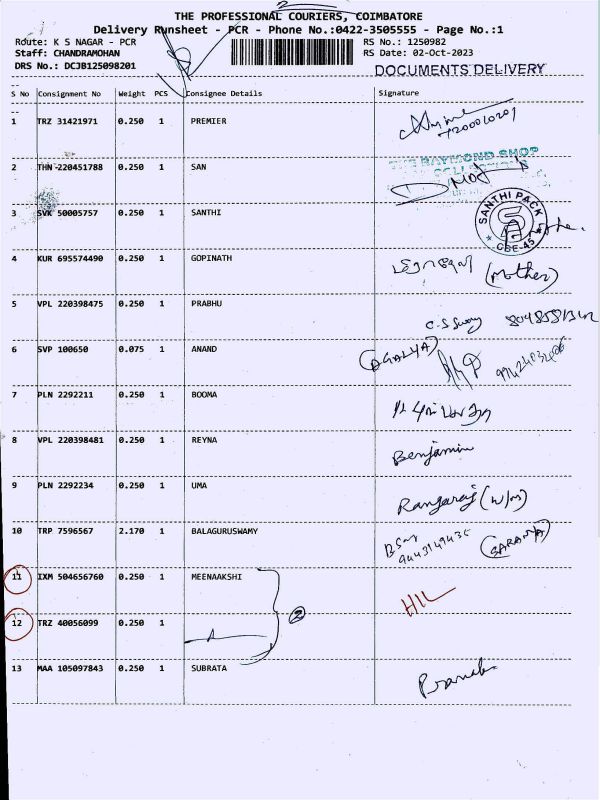 THE PROFESSIONAL COURIERS, COIMBATORE
Delivery Runsheet - PCR - Phone No.:0422-3505555 - Page No.:1
Route: K S NAGAR - PCR RS No.: 1250982
Staff: CHANDRAMOHAN RS Date: 02-Oct-2023
DRS No.: DCJB125098201 DOCUMENTS DELIVERY
S No Consignment No Weight PCS Consignee Details Signature
1 TRZ 31421971 0.250 1 PREMIER
THE RAYMOND SHOP
2 THN 220451788 0.250 1 SAN
SANTHI PACK
3 SVK 50005757 0.250 1 SANTHI
CBE-45
4 KUR 695574490 0.250 1 GOPINATH (Mother)
5 VPL 220398475 0.250 1 PRABHU
6 SVP 100650 0.075 1 ANAND (AGALYA)
7 PLN 2292211 0.250 1 BOOMA
8 VPL 220398481 0.250 1 REYNA Benjamin
9 PLN 2292234 0.250 1 UMA Rangaraj (W/M)
10 TRP 7596567 2.170 1 BALAGURUSWAMY (SARANYA)
11 IXM 504656760 0.250 1 MEENAAKSHI
12 TRZ 40056099 0.250 1 2
13 MAA 105097843 0.250 1 SUBRATA